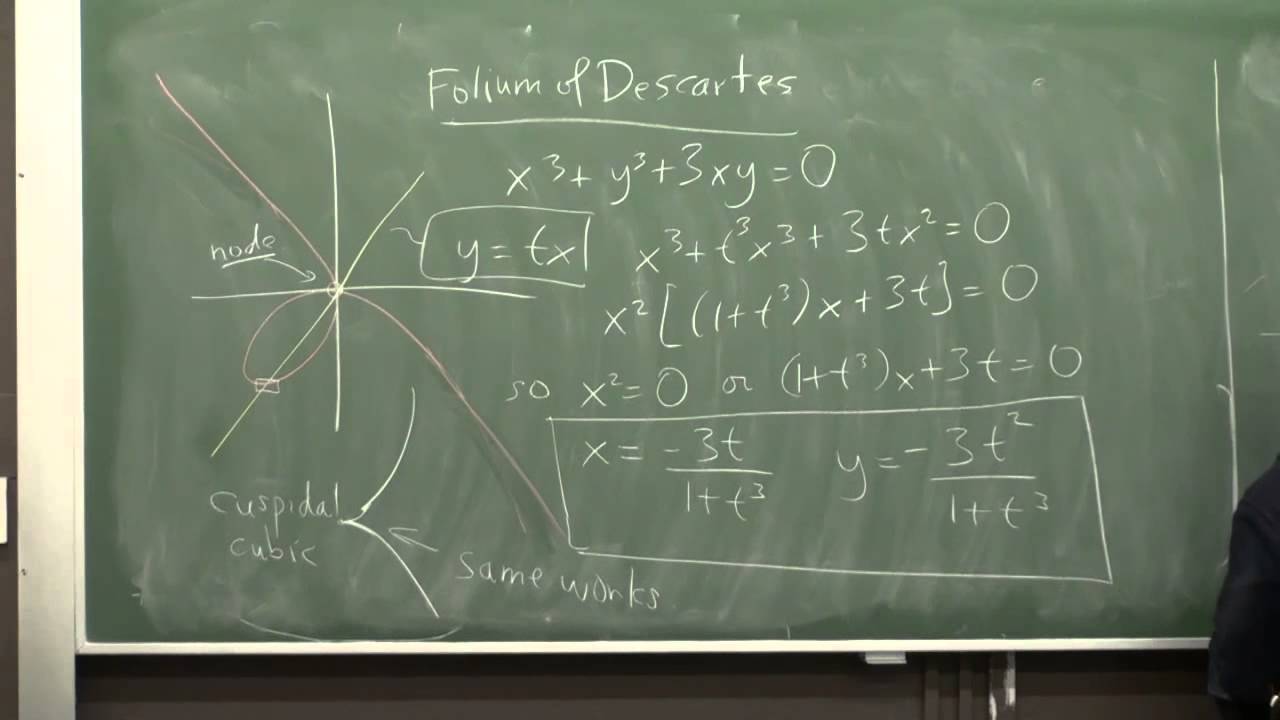 Folium of Descartes
x³ + y³ + 3xy = 0
node
y = tx
x³ + t³x³ + 3tx² = 0
x² [(1+t³)x + 3t] = 0
so x² = 0 or (1+t³)x + 3t = 0
x = -3t / 1+t³    y = - 3t² / 1+t³
cuspidal
cubic
same works